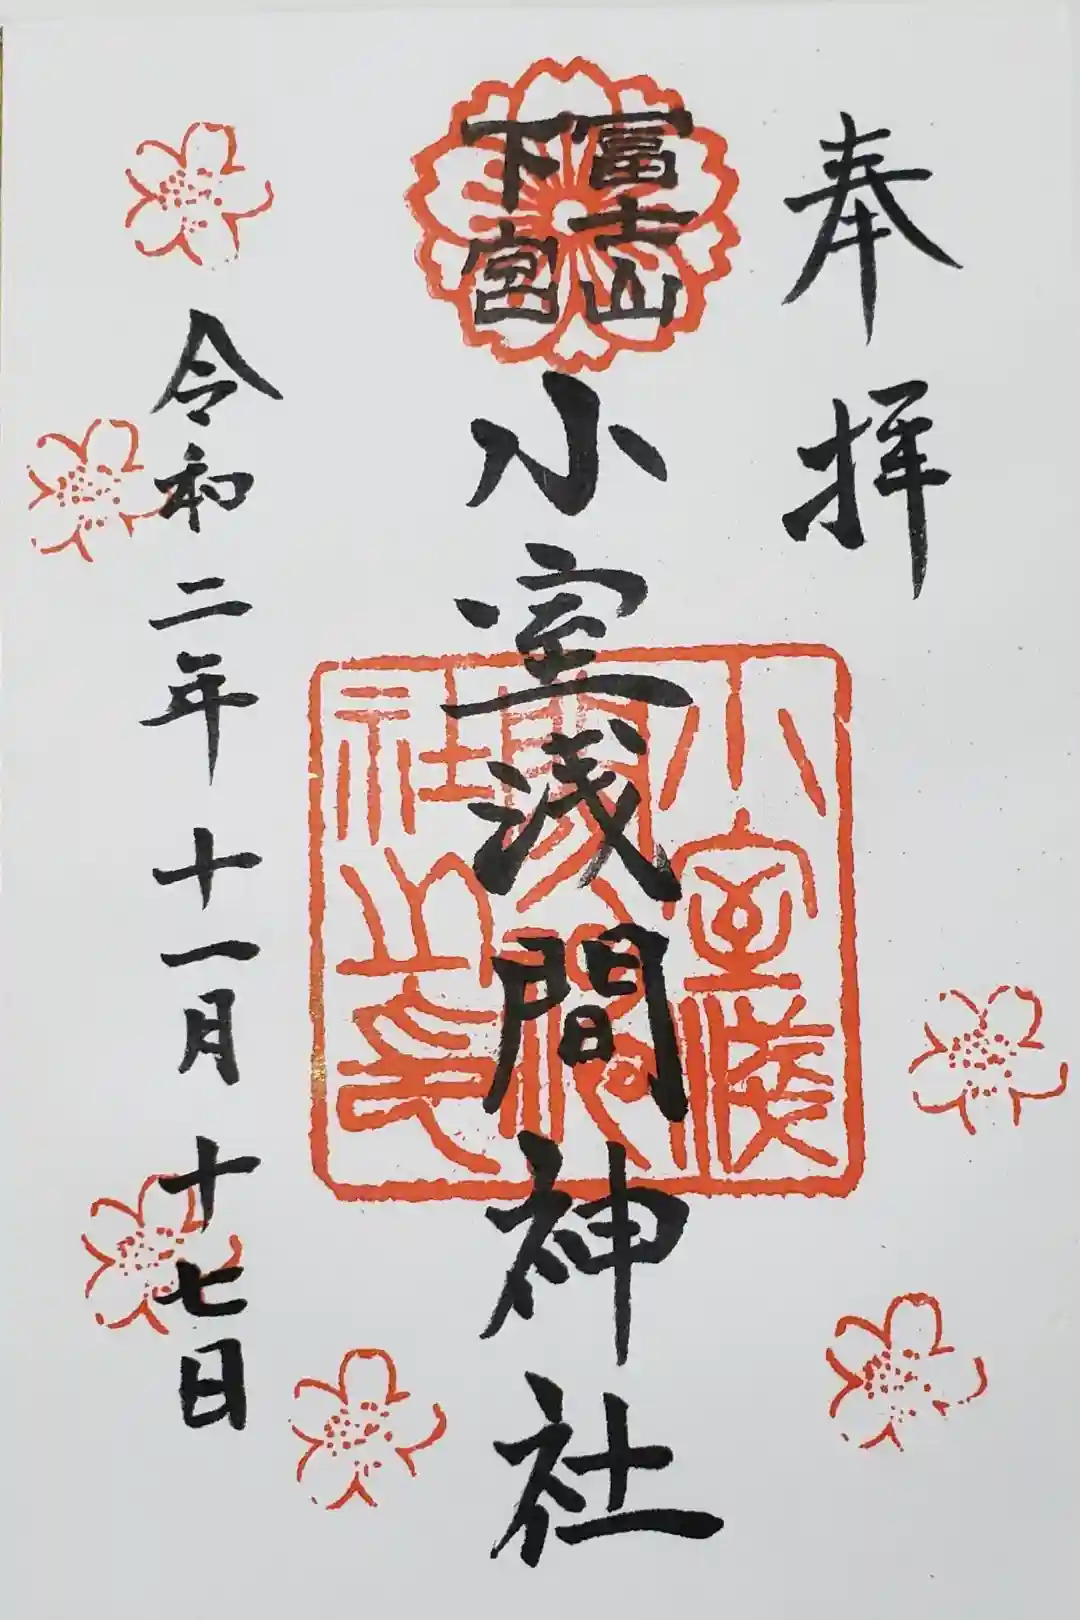 奉拝
富士山
下宮
小室浅間神社
小室浅
間神
社之印
令和二年十一月十七日